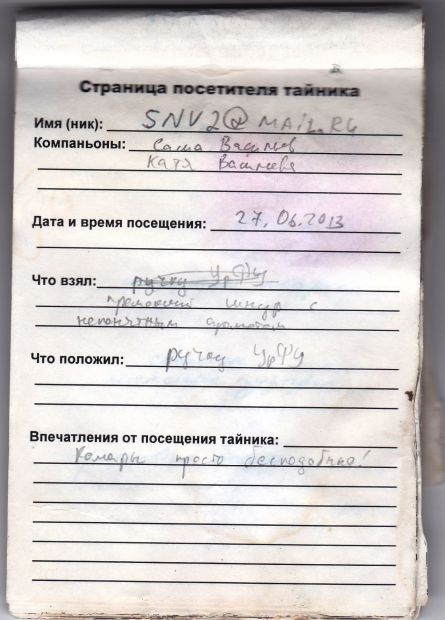 Страница посетителя тайника
Имя (ник): SNV2@MAIL.RU
Компаньоны: Саша Васильев
Катя Васильева
Дата и время посещения: 27.06.2013
Что взял: ручку УрФУ
шнур с
непонятным ароматом
Что положил: ручку УрФУ
Впечатления от посещения тайника:
Комары просто бесподобны!